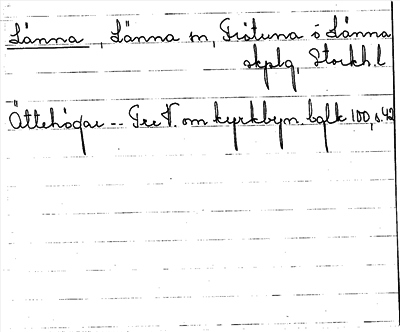 Länna, Länna sn, Frötuna o Länna
skplg, Stockh.l
Ättehögar -- Tre V. om kyrkbyn. bglk 100, s.42